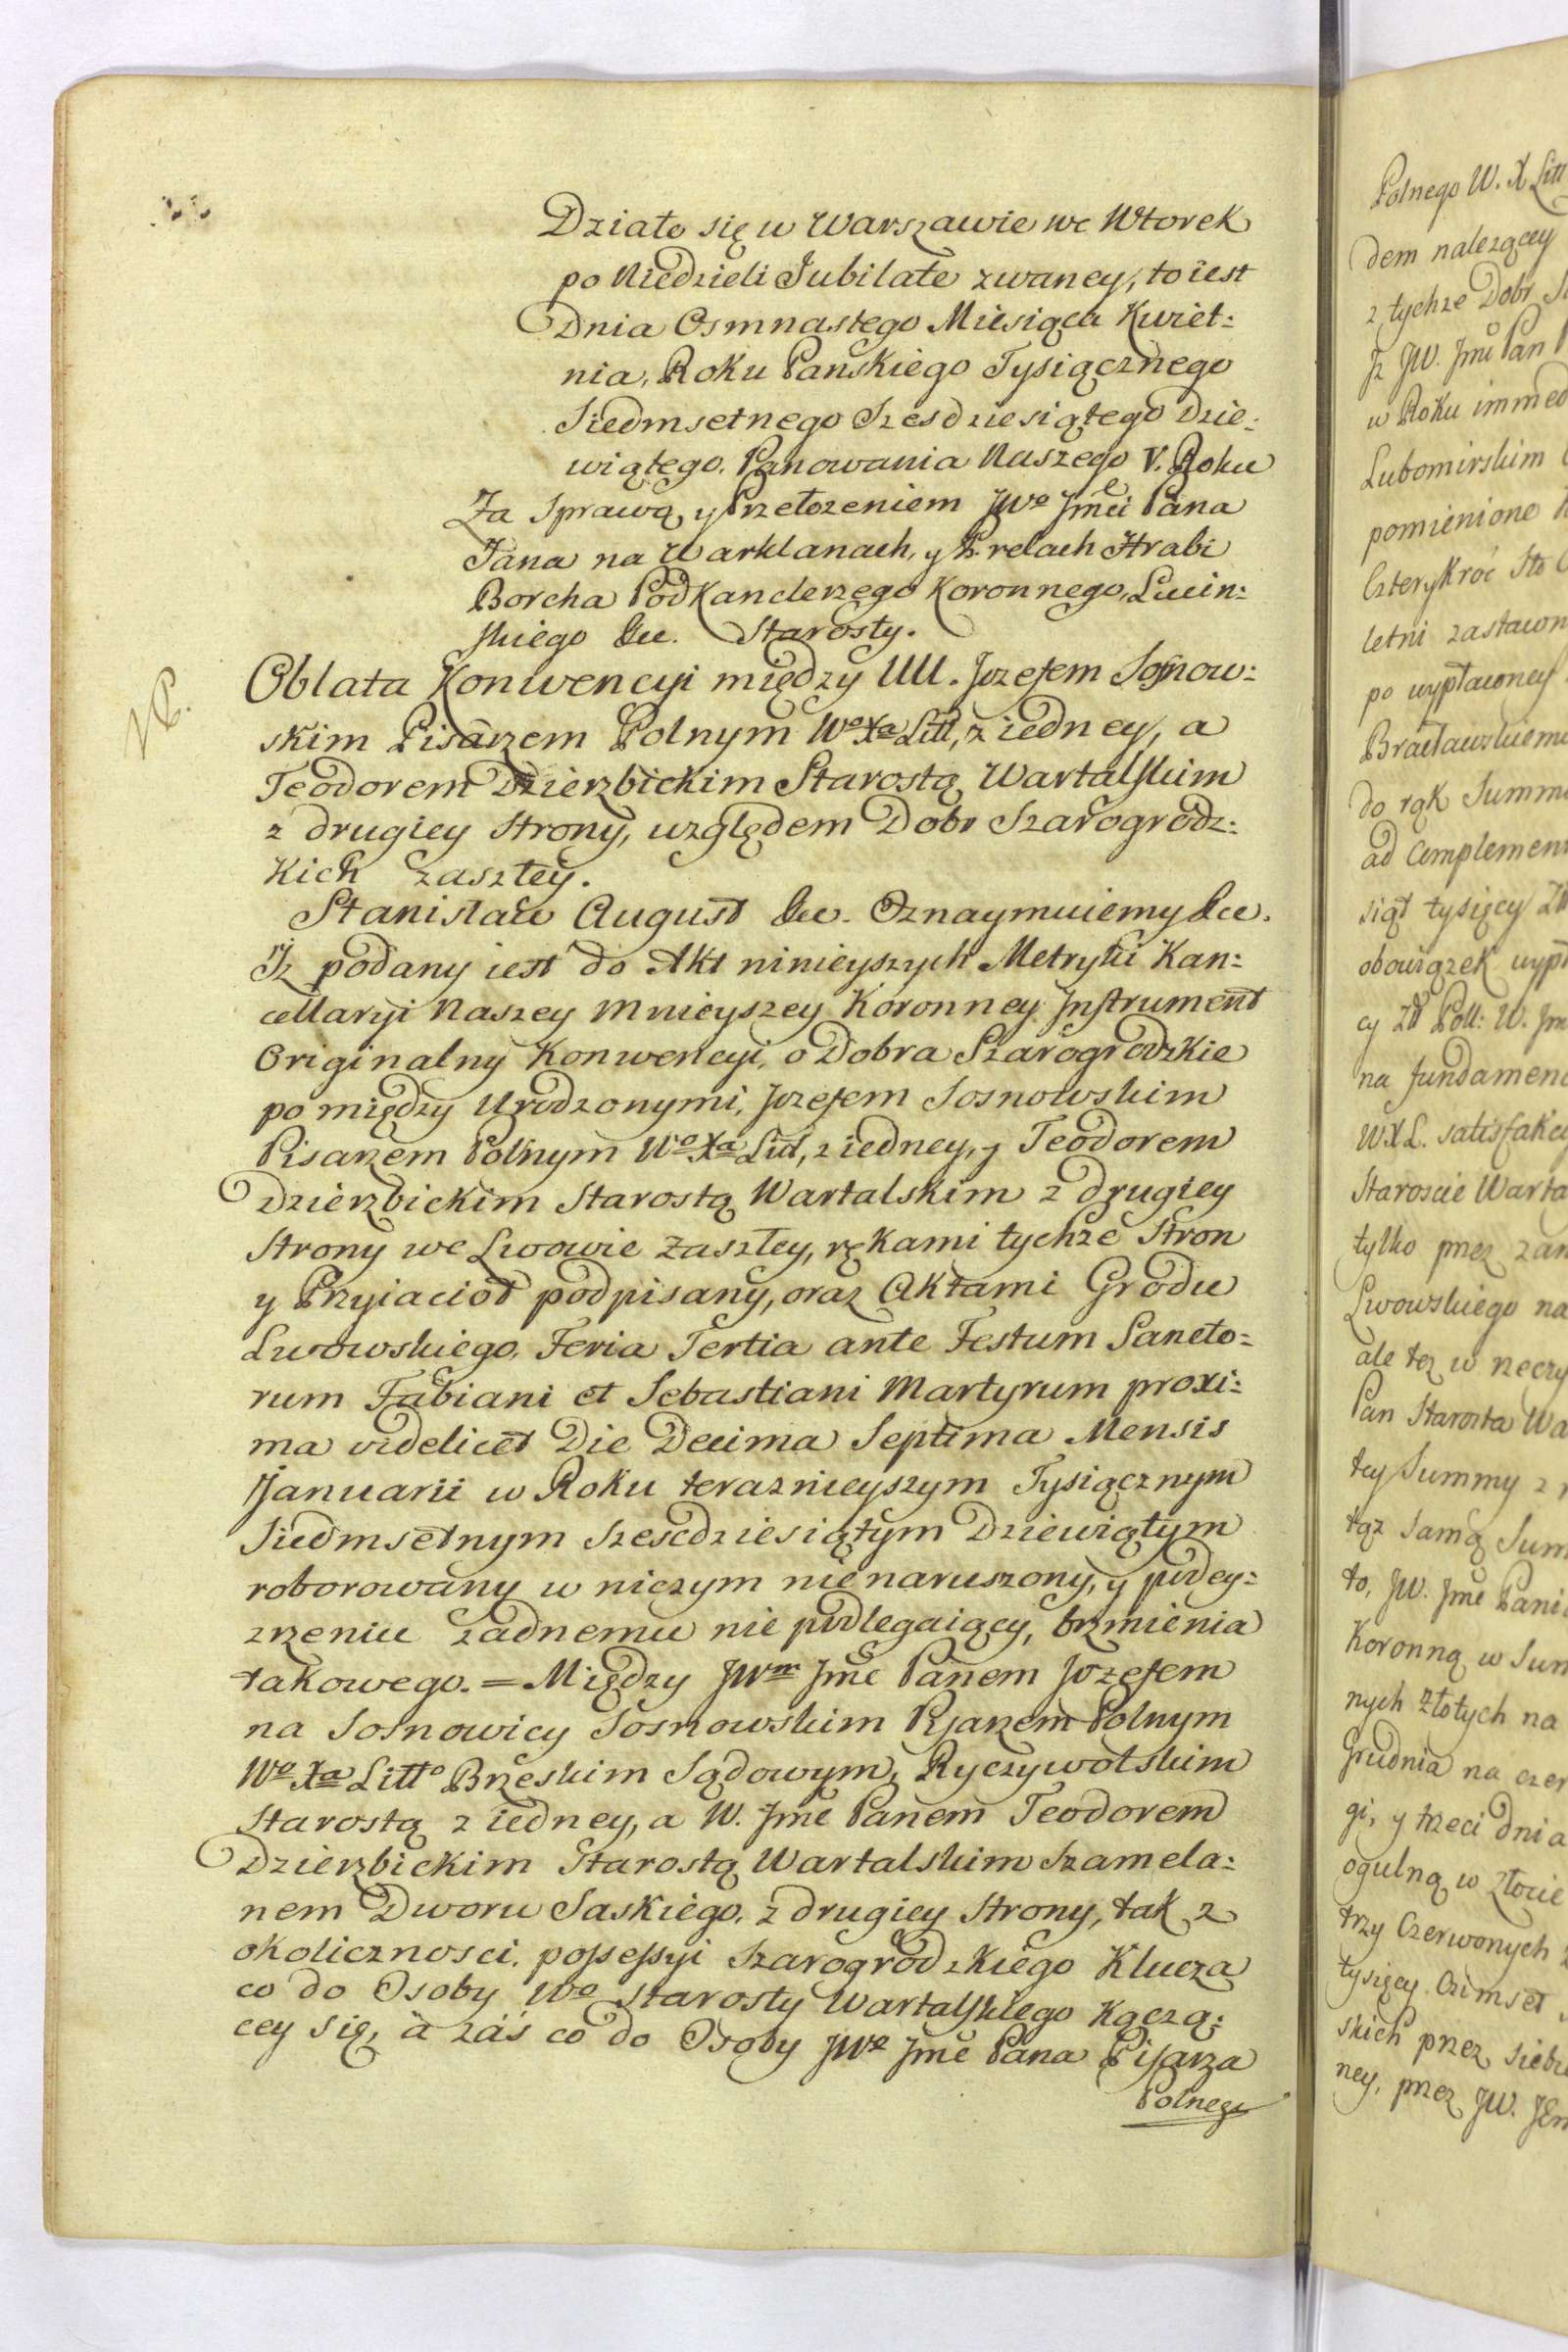 Działo się w Warszawie we Wtorek
po Niedzieli Jubilate zwaney, to iest
Dnia Osmnastego Miesiąca Kwiet:
nia, Roku Panskiego Tysiącznego
Siedmsetnego Szesdziesiątego Dzie:
wiątego. Panowania Naszego V. Roku
Za Sprawą y Przełozeniem JWo Jmci Pana
Jana na Warklanach, y Prelach Hrabi
Borcha Podkanclerzego Koronnego, Lucin:
skiego &c. Starosty.
NB.
Oblata Konwencyi między UU. Jozefem Sosnow:
skim Pisarzem Polnym Wo Xa Litt, z iedney, a
Teodorem Dzierzbickim Starostą Wartalskim
z drugiey Strony, względem Dobr Szarogrodz:
kich zaszłey.
Stanisław August &c. Oznaymuiemy &c.
Iz podany iest do Akt ninieyszych Metryki Kan:
cellaryi Naszey Mnieyszey Koronney Instrument
Originalny Konwencyi, o Dobra Szarogrodzkie
po między Urodzonymi, Jozefem Sosnowskim
Pisarzem Polnym Wo Xa Litt, z iedney, y Teodorem
Dzierzbickim Starostą Wartalskim z drugiey
Strony we Lwowie zaszłey, rękami tychże Stron
y Przyiacioł podpisany, oraz Aktami Grodu
Lwowskiego, Feria Tertia ante Festum Sancto:
rum Fabiani et Sebastiani Martyrum proxi:
ma videlicet Die Decima Septima Mensis
Januarii w Roku teraznieyszym Tysiącznym
Siedmsetnym Szescdziesiątym Dziewiątym
roborowany w niczym nienaruszony, y podey:
zrzeniu żadnemu nie podlegaiący, brzmienia
takowego. = Między JWm Jme Panem Jozefem
na Sosnowicy Sosnowskim Pisarzem Polnym
Wo Xa Litto Brzeskim Sądowym, Ryczywolskim
Starostą z iedney, a W. Jme Panem Teodorem
Dzierzbickim Starostą Wartalskim Szamela:
nem Dworu Saskiego, z drugiey Strony, tak z
okolicznosci, possessyi Szarogrodzkiego Klucza
co do Osoby Wo Starosty Wartalskiego Kączą:
cey się, a zaś co do Osoby JWo Jme Pana Pisarza
Polnego
Polnego W. X Litt
dem należącey
z tychże Dobr
Iz JW. Jmci Pan
w Roku immed
Lubomirskim
pomienione
Czterykroć Sto
letni zastawn
po wypłaconey
Bracławskiemu
do rąk Summ
ad Complement
siąt tysięcy
obowiązek wypł
cy Zł Poll: W. Jm
na fundamenc
WXL. satisfakcy
Staroscie Warta
tylko przez zam
Lwowskiego na
ale też w rzeczy
Pan Starosta Wa
tey Summy z
tąż samą Sum
to, JW. Jme Pani
Koronną w Sum
nych Złotych na
Grudnia na czer
gi, y trzeci dnia
ogulną w złocie
trzy Czerwonych
tysięcy Osimset
skich przez siebie
ney, przez JW.